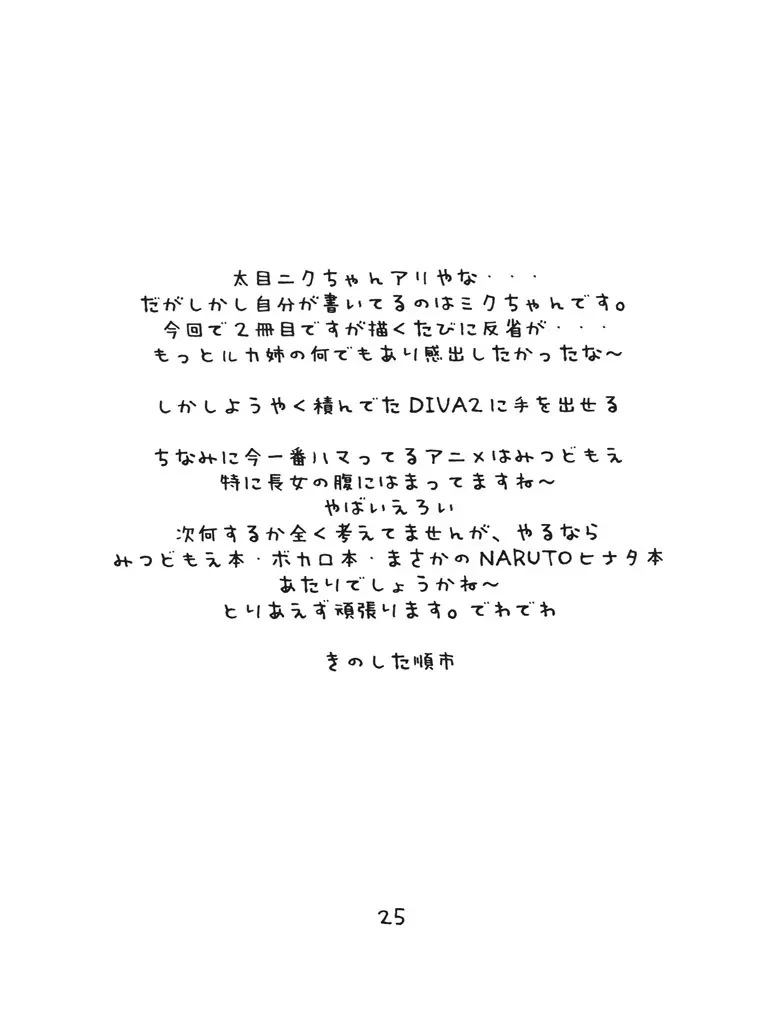 太目ニクちゃんアリやな・・・
だがしかし自分が書いてるのはミクちゃんです。
今回で2冊目ですが描くたびに反省が・・・
もっとルカ姉の何でもあり感出したかったな～
しかしようやく積んでたDIVA2に手を出せる
ちなみに今一番ハマってるアニメはみつどもえ
特に長女の腹にはまってますね～
やばいえろい
次何するか全く考えてませんが、やるなら
みつどもえ本・ボカロ本・まさかのNARUTOヒナタ本
あたりでしょうかね～
とりあえず頑張ります。でわでわ
きのした順市
25